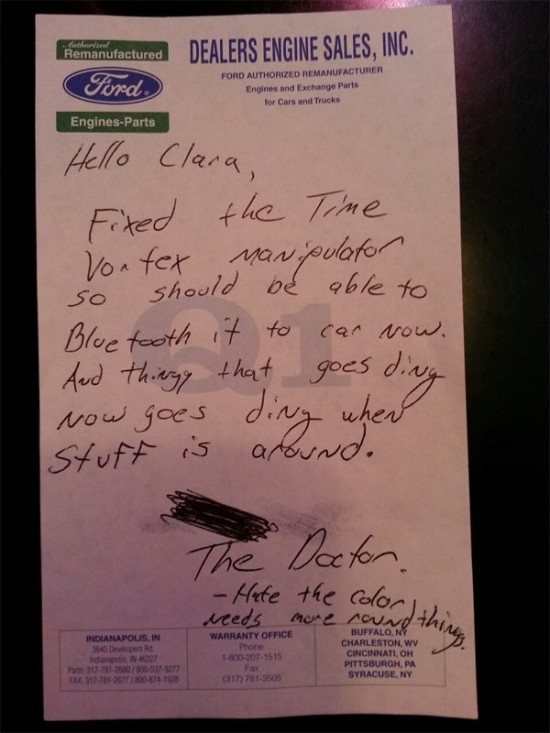 Authorized
Remanufactured
Ford
Engines-Parts
DEALERS ENGINE SALES, INC.
FORD AUTHORIZED REMANUFACTURER
Engines and Exchange Parts
for Cars and Trucks
Q1
Hello Clara,
Fixed the Time
Vortex manipulator
so should be able to
Bluetooth it to car now.
And thingy that goes ding
now goes ding when
stuff is around.
The Doctor.
- Hate the color,
needs more round things.
INDIANAPOLIS, IN
3645 Developers Rd.
Indianapolis, IN 46227
Parts: 317-781-2680 / 800-537-9277
FAX: 317-781-2677 / 800-874-1928
WARRANTY OFFICE
Phone
1-800-207-1515
Fax
(317) 781-3505
BUFFALO, NY
CHARLESTON, WV
CINCINNATI, OH
PITTSBURGH, PA
SYRACUSE, NY